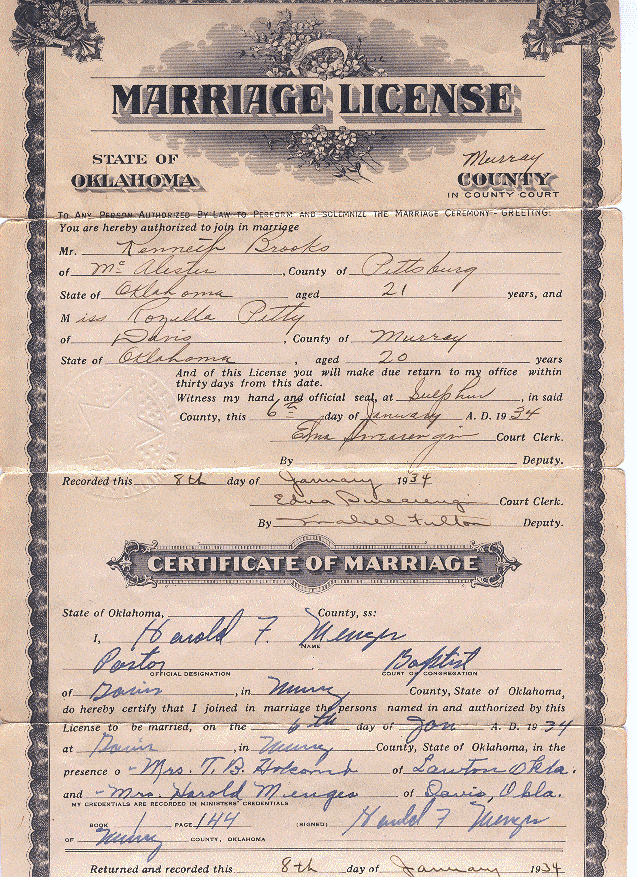 MARRIAGE LICENSE
STATE OF OKLAHOMA
Murray COUNTY
IN COUNTY COURT
TO ANY PERSON AUTHORIZED BY LAW TO PERFORM AND SOLEMNIZE THE MARRIAGE CEREMONY - GREETING:
You are hereby authorized to join in marriage
Mr. Kenneth Brooks
of Mc Alester, County of Pittsburg
State of Oklahoma aged 21 years, and
Miss Rozella Petty
of Davis, County of Murray
State of Oklahoma, aged 20 years
And of this License you will make due return to my office within
thirty days from this date.
Witness my hand and official seal, at Sulphur, in said
County, this 6th day of January A. D. 1934
Edna Court Clerk.
By Deputy.
Recorded this 8th day of January 1934
Edna Court Clerk.
By Fulton Deputy.
CERTIFICATE OF MARRIAGE
State of Oklahoma, County, ss:
I, Harold F. Menges
NAME
Pastor Baptist
OFFICIAL DESIGNATION COURT OR CONGREGATION
of Davis, in Murray County, State of Oklahoma,
do hereby certify that I joined in marriage the persons named in and authorized by this
License to be married, on the 6th day of Jan A. D. 1934
at Davis, in Murray County, State of Oklahoma, in the
presence o - Mrs. T. B. Holcomb of Lawton Okla.
and - Mrs. Harold Menges of Davis, Okla.
MY CREDENTIALS ARE RECORDED IN MINISTERS' CREDENTIALS
BOOK PAGE 144 (SIGNED) Harold F Menges
OF Murray COUNTY, OKLAHOMA
Returned and recorded this 8th day of January 1934